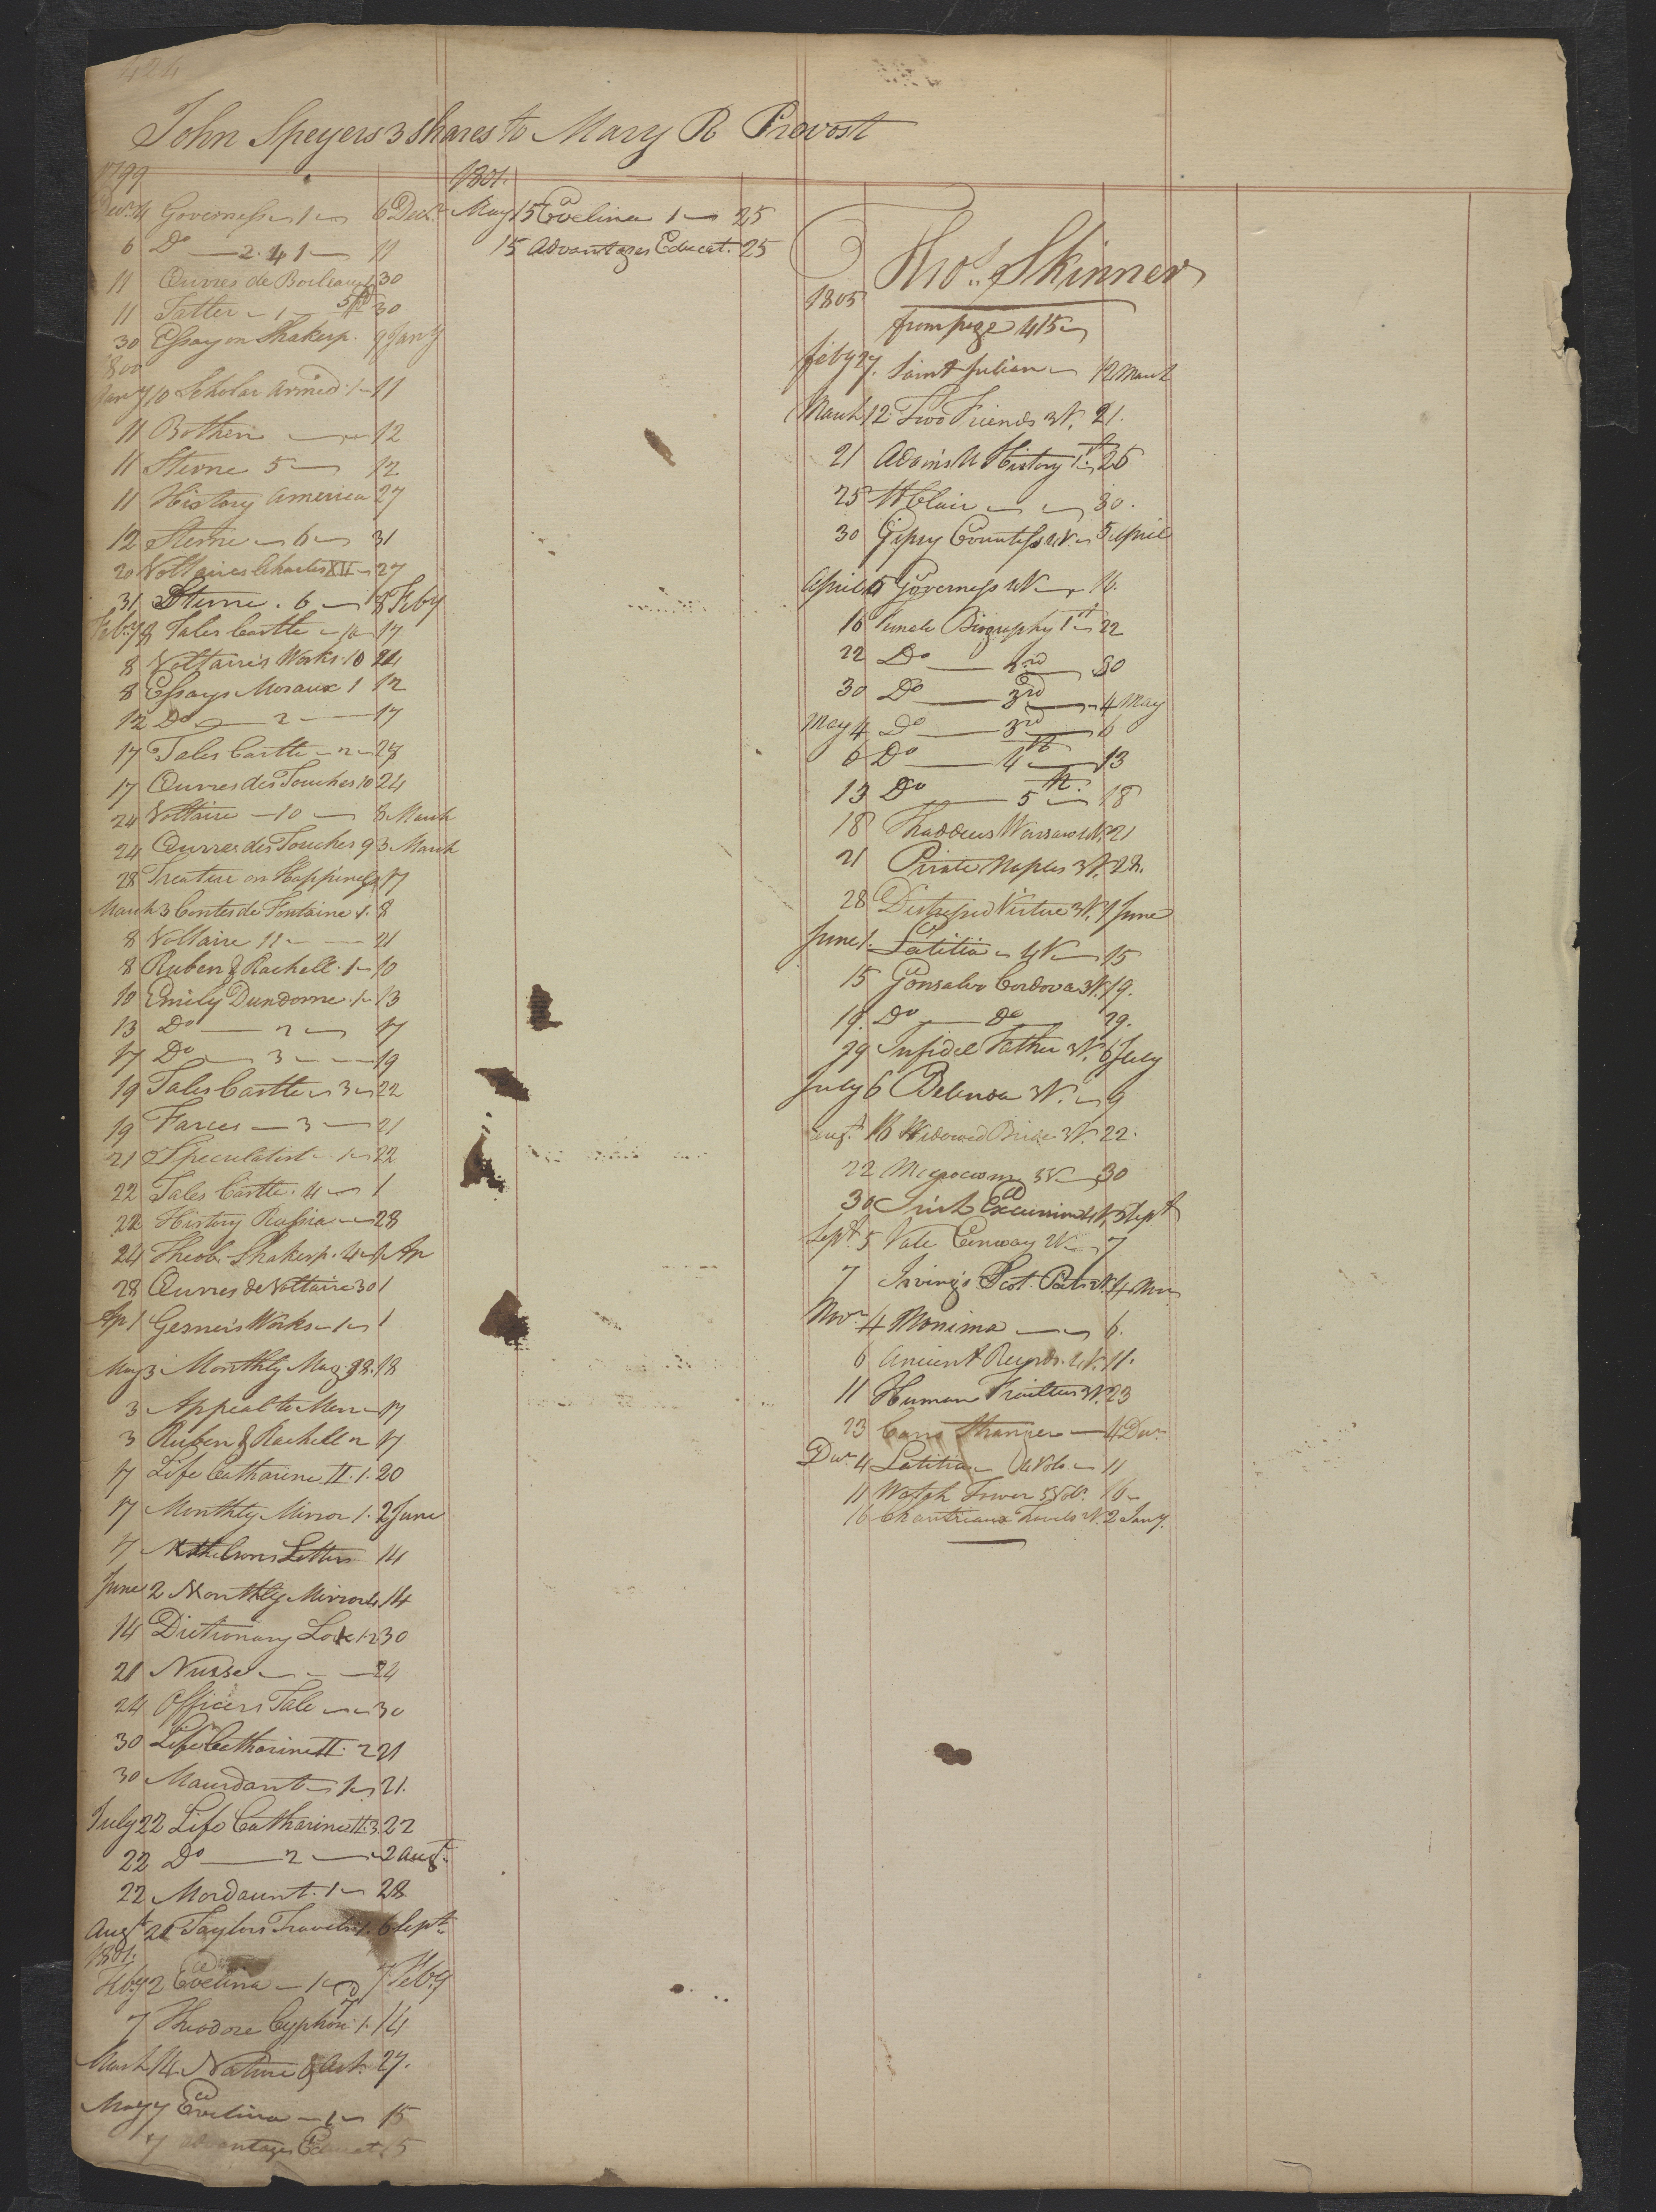 424
John Speyers 3 shares to Mary R Provost
1799
Decr 4 Governess 1 6 Decr
6 Do 2. & 1 11
11 Œuvres de Boileau 1 30
11 Tatler 1 30
30 Essay on Shakesp. 9 Jany
1800
Jany 10 Scholar Armed 1 11
11 Bothen 12
11 Sterne 5 12
11 History America 27
12 Sterne 6 31
20 Voltaires Charles XII 27
31 Sterne. 6 8 Feby
Feby 8 Tales Castle 17
8 Voltaire's Works. 10 24
8 Essays Moraux 1 12
12 Do 2 17
17 Tales Castle 2 27
17 Œuvres des Touches 10 24
24 Voltaire 10 8 March
24 Œuvres des Touches 9 3 March
28 Treatise on Happiness 17
March 3 Contes de Fontaine 1. 8
8 Voltaire 11 21
8 Ruben & Rachell. 1 10
10 Emily Dundorne. 1 13
13 Do 2 17
17 Do 3 19
19 Tales Castle 3 22
19 Farces 3 21
21 Speculatist 1 22
22 Tales Castle. 4 1
22 History Russia 28
24 Theob. Shakesp. 4 1 Ap
28 Œuvres de Voltaire 30 1
Ap 1 Gesner's Works 1 1
May 3 Monthly Mag. 18
3 Appeal to Men 17
3 Ruben & Rachell 2 17
17 Life Catharine II. 1. 20
17 Monthly Mirror 1. 2 June
17 Letters 14
June 2 Monthly Mirror 4 14
14 Dictionary Love 12 30
21 Nurse 24
24 Officers Tale 30
30 Life Catharine II. 2 21
30 Maurdant 1 21.
July 22 Life Catharine II. 3. 22
22 Do 2 2 Augt
22 Mordaunt. 1 28
Augt 21 Taylors Travels 1. 6 Sept
1801.
Feby 2 Evelina 1 7 Feby
7 Theodore Cyphon 1. 14
March 14. Nature & Art. 27.
May 7 Evelina 1 15
7 Advantages Educat. 15
1801.
May 15 Evelina 1 25
15 Advantages Educat. 25
Thos. Skinner
1805
from page 415
Feby 27. Saint Julian 12 March
March 12 Two Friends 3V. 21.
21 Adams U History 1st 25
25 St Clair 30.
30 Gipsy Countess 2V. 5 April
April 5 Governess 2V 16.
16 Female Biography 1st 22
22 Do 2nd 30
30 Do 3rd 4 May
May 4 Do 3rd 6
6 Do 4th 13
13 Do 5th 18
18 Thaddeus Warsaw 21
21 Pirate Naples 3V. 28.
28 Distressed Virtue 3V. 1 June
June 1. Letitia 15
15 Gonsalvo Cordova 3V. 19.
19. Do Do 29.
29 Infidel Father 3V. 6 July
July 6 Belinda 3V. 9
Augt. 16 Widowed Bride 3V. 22.
22 Microcosm 5V 30
30 Irish Excursion 4V. 5 Sept
Sept. 5 Vale Conway 7
7 Irving's Scot. Poets 2V. 4 Nov
Novr 4 Monima 6.
6 Ancient Records. 4V. 11.
11 Human Frailties 3V. 23
23 Carrs Stranger 4 Decr
Decr 4 Letitia 11
11 Watch Tower 5 Vol. 16
16 Chantreaus Travels 2V. 2 Jany.